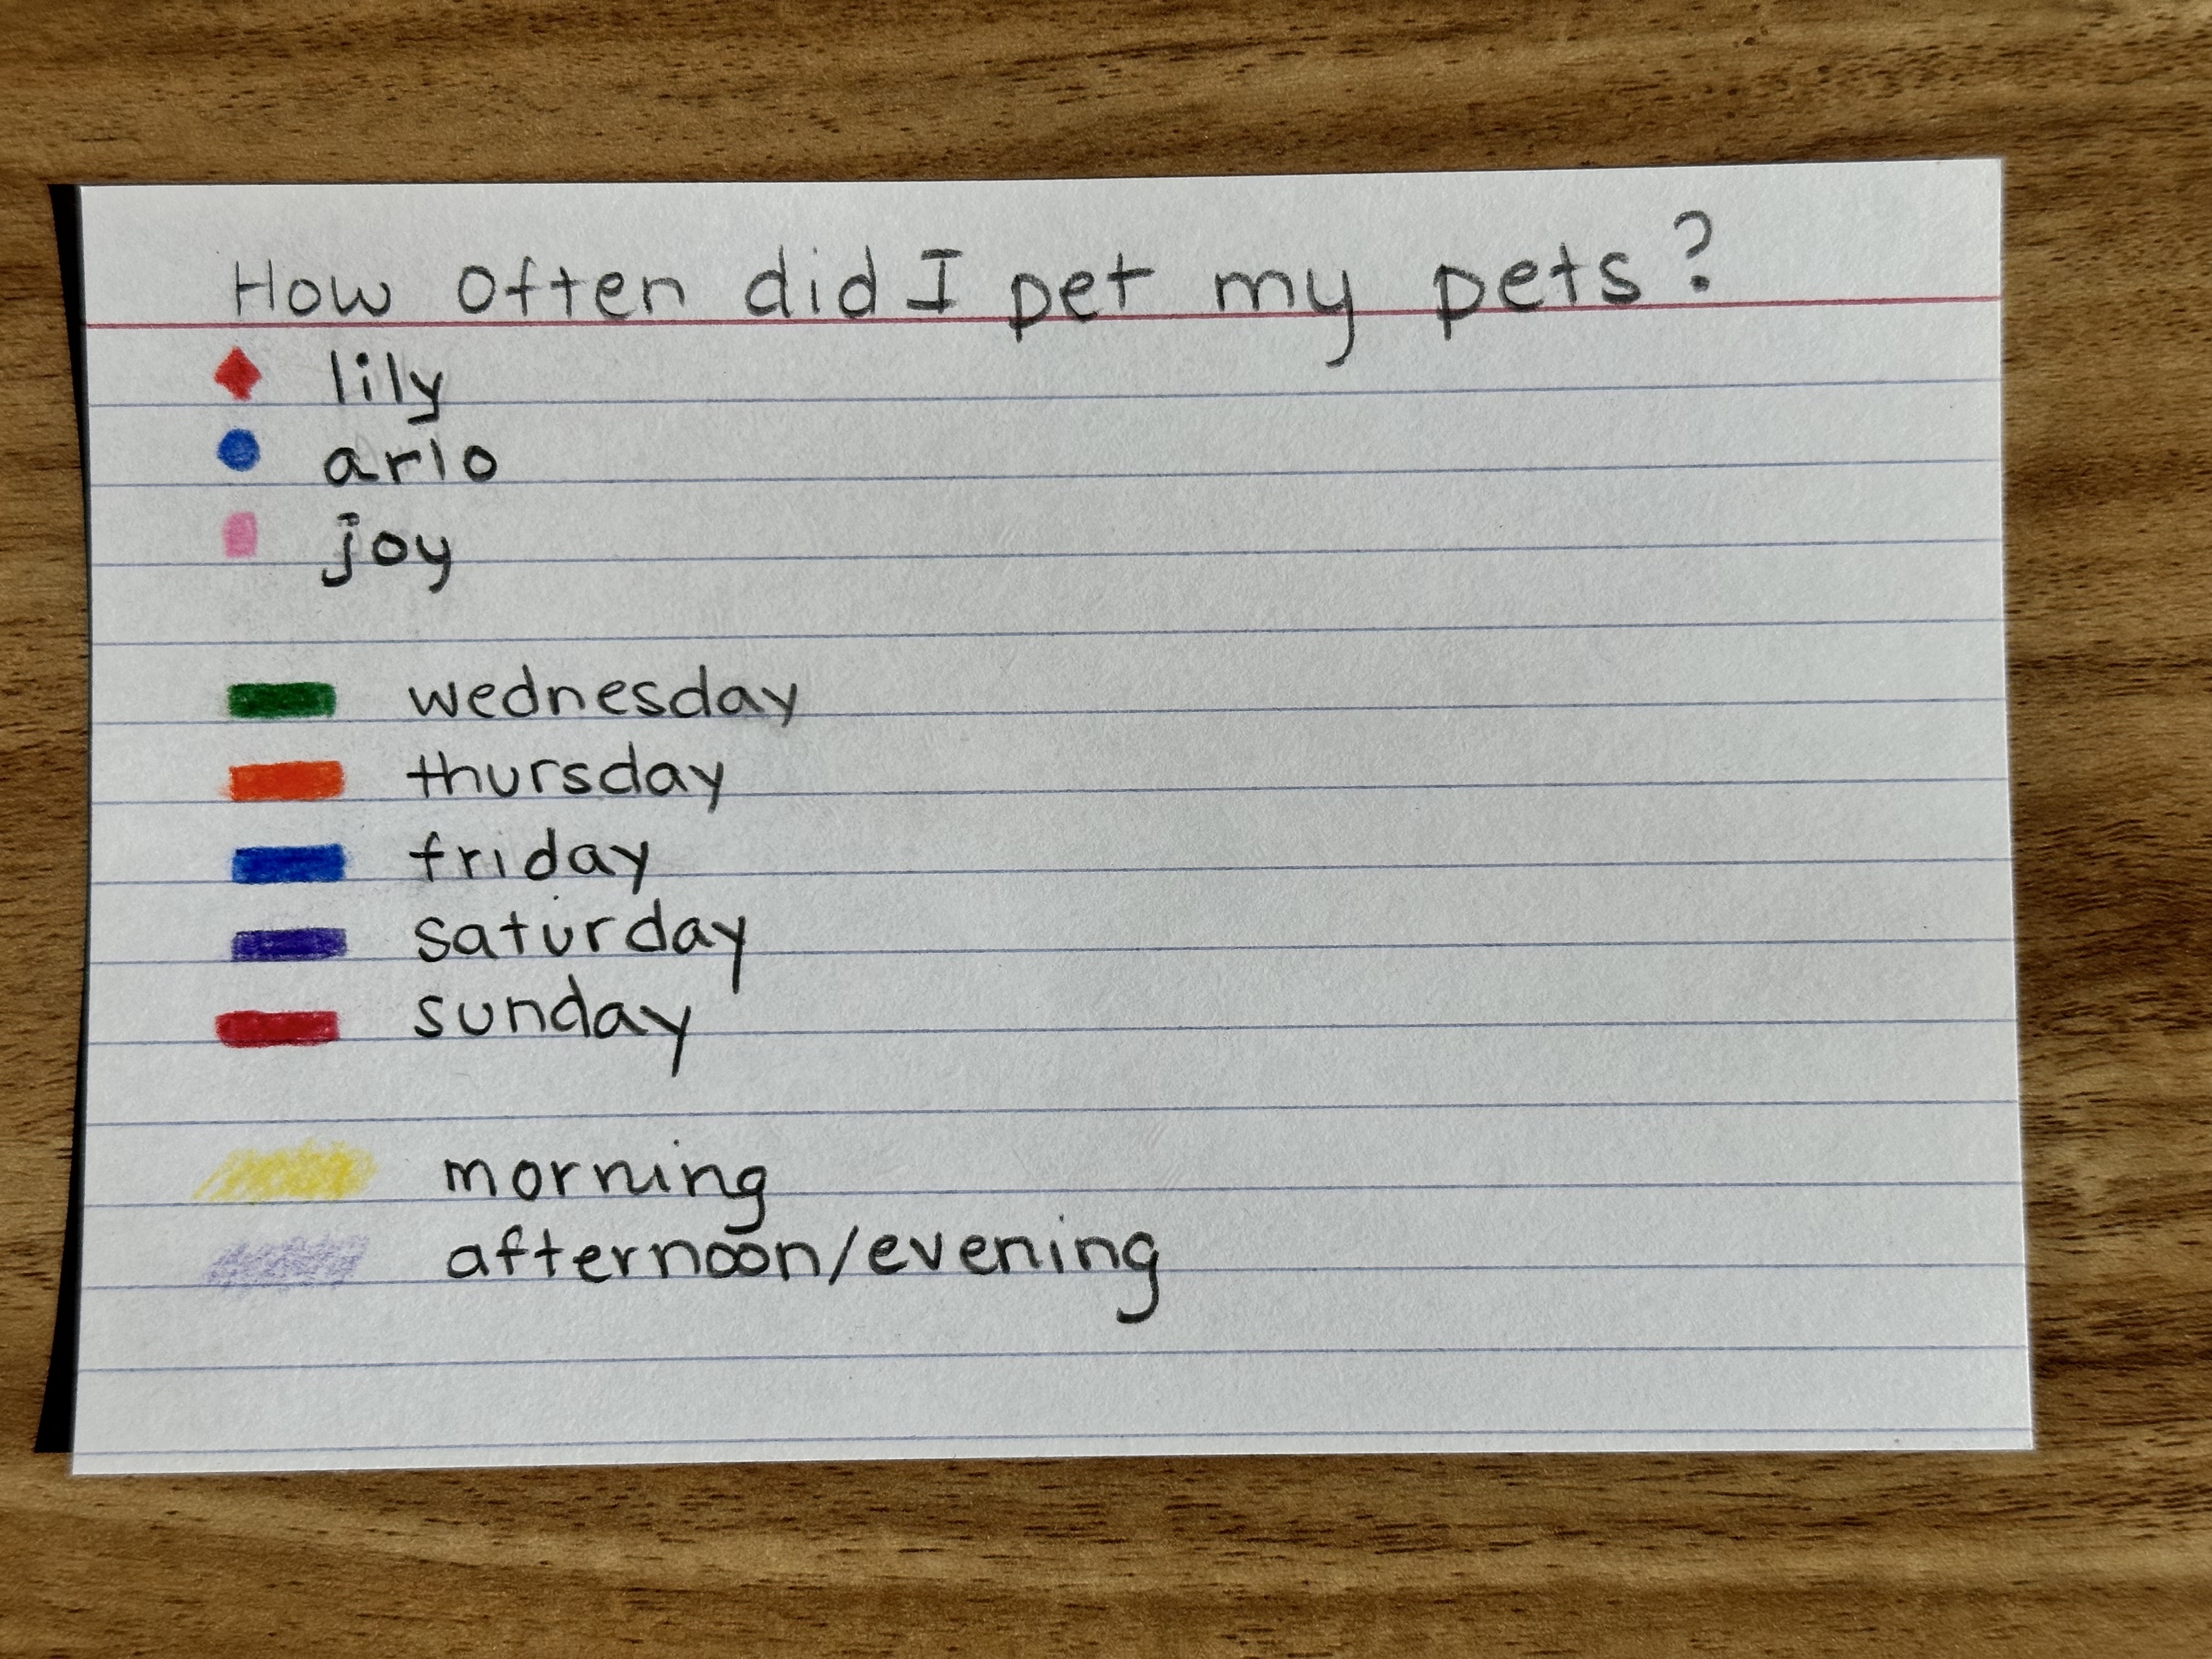 How often did I pet my pets?
lily
arlo
joy
wednesday
thursday
friday
saturday
sunday
morning
afternoon/evening